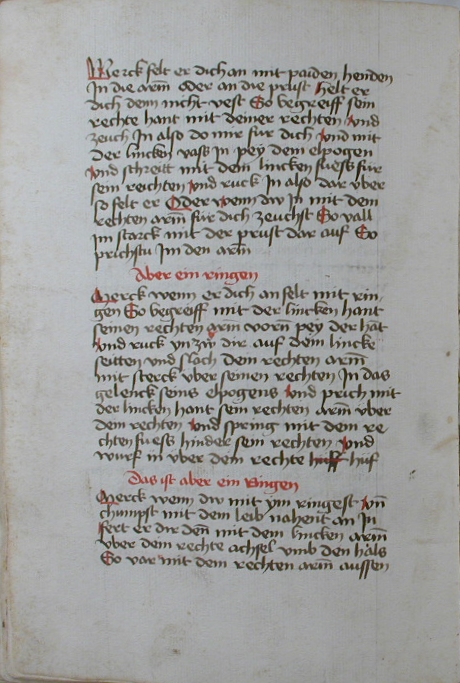 Merck felt er dich an mit paiden henden
In die arm̄ oder an die prust helt er
dich denn nicht vest So begreiff sein
rechte hant mit deiner rechten vnd
zeuch In also do mir fur dich vnd mit
der lincken vass in pey dem elpogen
vnd schreitt mit dem lincken fuess fur
sein rechten vnd ruck In also dar vber
so felt er Oder wenn dw In mit dem
rechten arm̄ fur dich zeuchst So vall
Im starck mit der prust dar auf So
prichstu Im den arm̄
Aber ein ringen
Merck wenn er dich an felt mit rin-
gen So begreiff mit der lincken hant
seinen rechten arm vorn̄ pey der hāt
vnd ruck yn zw dir auf dein lincke
seitten vnd slach dem rechten arm̄
mit sterck vber seinen rechten In das
gelenck seins elpogens vnd prich mit
der lincken hant sein rechten arm̄ vber
dem rechten vnd spring mit dem re
chten fuess hinder sein rechten vnd
wurf in vber dem rechte huff huf
Das ist aber ein Ringen
Merck wenn dw mit ym ringest vn̄
chumpst mit dem leib nahent an In
fert er dir den̄ mit dem lincken arm̄
vber dein rechte achsel vmb den hals
So var mit dem rechten arm̄ aussen